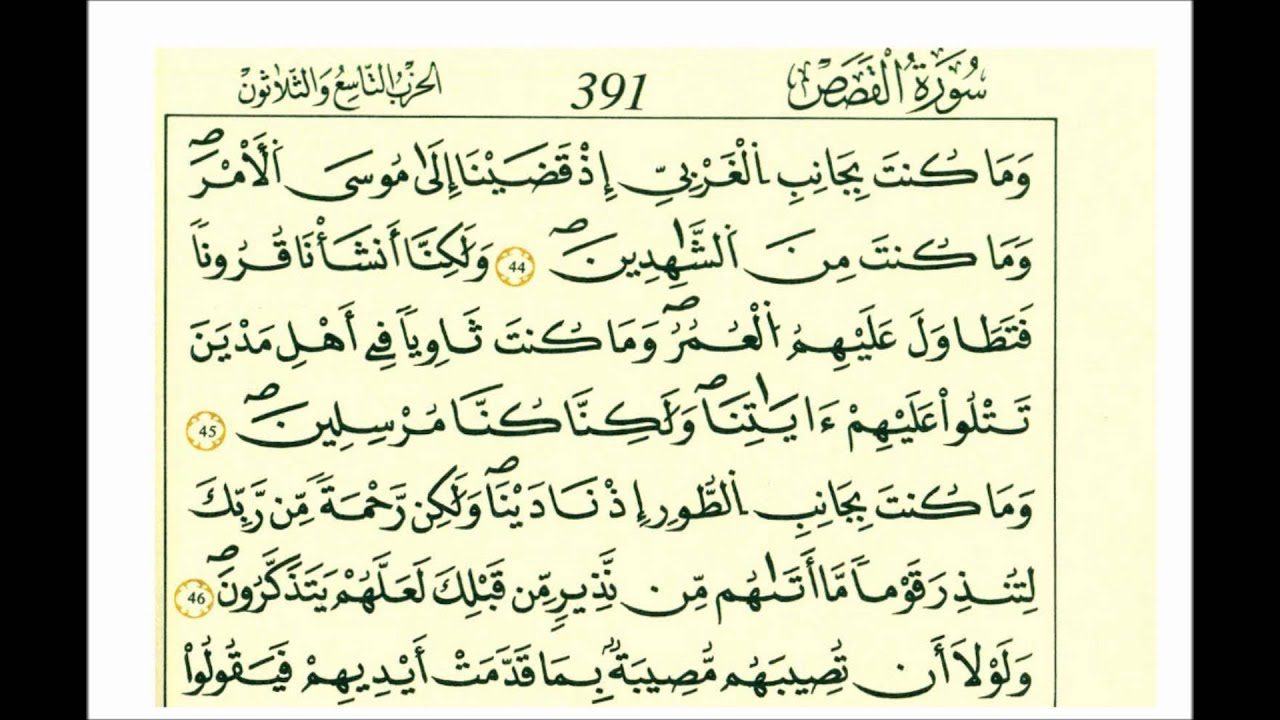 سُورَةُ الْقَصَصِ 391 الحِزْبُ التَّاسِعُ وَالثَّلَاثُونَ
وَمَا كُنتَ بِجَانِبِ اِ۬لْغَرْبِيِّ إِذْ قَضَيْنَا إِلَىٰ مُوسَى اَ۬لْأَمْرَۖ
وَمَا كُنتَ مِنَ اَ۬لشَّٰهِدِينَۖ 44 وَلَٰكِنَّا أَنشَأْنَا قُرُوناٗ
فَتَطَاوَلَ عَلَيْهِمُ اُ۬لْعُمُرُۖ وَمَا كُنتَ ثَاوِياٗ فِے أَهْلِ مَدْيَنَ
تَتْلُواْ عَلَيْهِمْ ءَايَٰتِنَاۖ وَلَٰكِنَّا كُنَّا مُرْسِلِينَۖ 45
وَمَا كُنتَ بِجَانِبِ اِ۬لطُّورِ إِذْ نَادَيْنَاۖ وَلَٰكِن رَّحْمَةٗ مِّن رَّبِّكَ
لِتُنذِرَ قَوْماٗ مَّا أَتَىٰهُم مِّن نَّذِيرٖ مِّن قَبْلِكَ لَعَلَّهُمْ يَتَذَكَّرُونَۖ 46
وَلَوْلَا أَن تُصِيبَهُم مُّصِيبَةُۢ بِمَا قَدَّمَتْ أَيْدِيهِمْ فَيَقُولُواْ